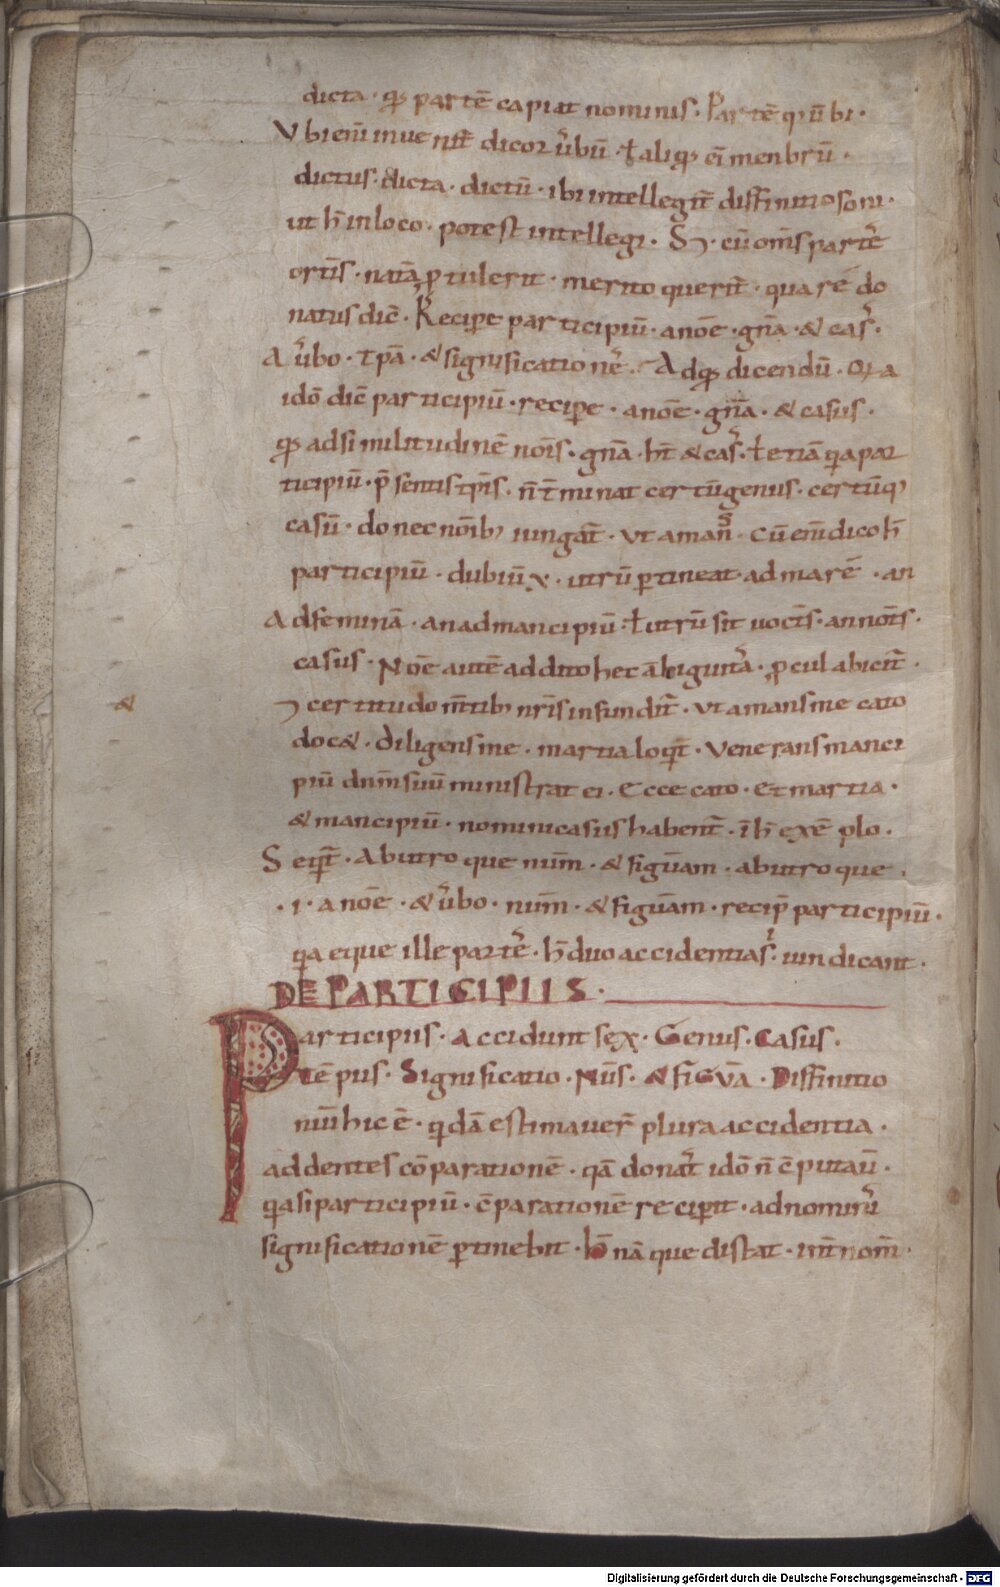 dicta · qđ partē capiat nominis · Partē q; ūbi ·
Vbi enī inuenit̄ dicor ūbū · ł aliqđ ei menbrū ·
dictus · dicta · dictū · ibi intellegit̄ diffinitio soni ·
ut h̄ in loco · potest intellegi · S; · cū om̄s partē
ort̄is · natā ꝓtulerit · merito querit̄ · quarē do
natus dic̄ · Recipe participiū · a noē · gn̄a · & cas᷎ ·
A ūbo · tp̄a · & significationē · Ad qđ dicendū · Qia
idō dic̄ participiū · recipe · a noē · gn̄a · & casus ·
qđ ad similitudinē noīs · gn̄a · ht̄ & cas᷎ · ł etiā qa par
ticipiū · p̄sentis tp̄is · n̄ t̄minat certū genus · certūq;
casū · donec noīb; iungat̄ · ut aman᷎s · cū enī dico h̄
participiū · dubiū; · utrū ꝑtineat ad marē · an
Ad feminā · an ad mancipiū · ł utrū sit uoct̄s · an not̄s ·
casus · Noē autē addito hec ābigunt̄a · ꝓcul abicit̄ ·
; certitudo m̄tib; nr̄is infundit̄ · Vt amans me cato
doc& · diligens me · martia loqt̄ · Venerans manci
&
piū dn̄m suū ministrat ei · Ecce cato · Et martia ·
& mancipiū · nominicasus habent̄ · ī h̄ exēplo ·
Seqt̄ · Ab utroque num̄ · & figūam · ab utroque ·
· i · a noē · & ūbo · num̄ · & figūam · recip̄ participiū ·
qa eque ille partē · h̄ duo accidentia s᷎ · uindicant ·
DE PARTICIPIIS ·
Participiis · Accidunt sex · Genus · Casus ·
tēpus · Significatio · Nūs · & Figūa · Diffinitio
niū hic ē · qdā estimauer̄ plura accidentia ·
addentes cōparationē · qā donat̄ idō n̄ ē putaū ·
qa si participiū · cēparationē recipit · ad nominī
significationē ꝑtinebit · h̄ nā que distat · int̄ nom̄ ·
Digitalisierung gefördert durch die Deutsche Forschungsgemeinschaft · DFG